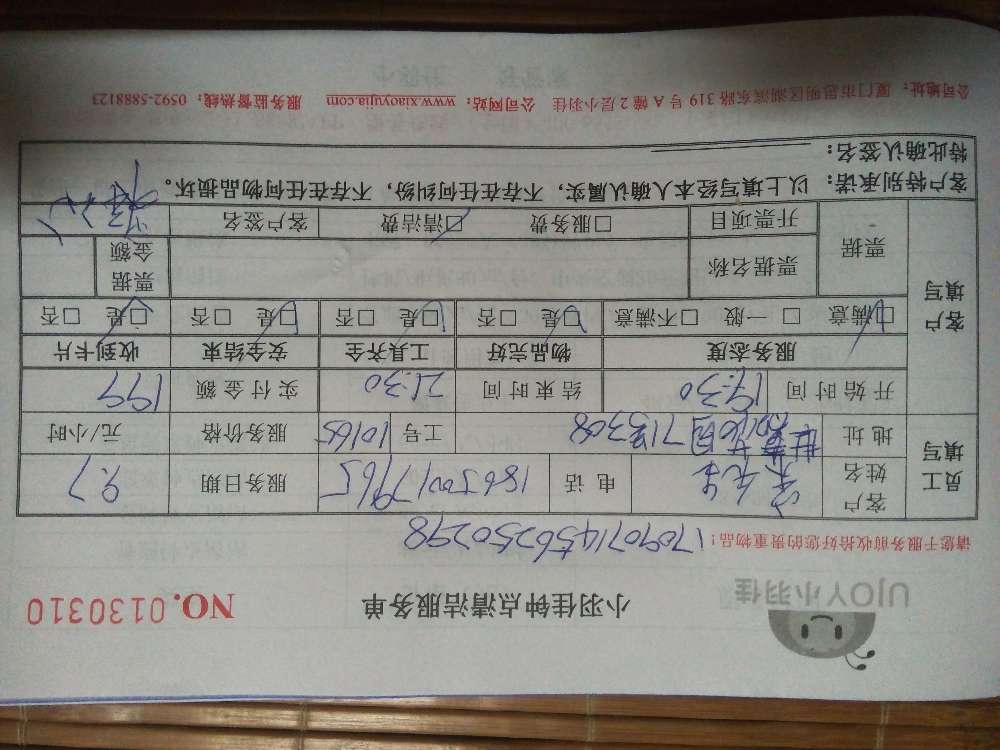 UJOY小羽佳
小羽佳钟点清洁服务单
NO.0130310
请您于服务前收拾好您的贵重物品!
170907145625029８
员工填写
客户姓名 先生 电话 18650017965 服务日期 9.7
地址 71号3308 工号 10165 服务价格 元/小时
开始时间 19:30 结束时间 21:30 实付金额 199
客户填写
服务态度 物品完好 工具齐全 安全结束 收到卡片
□满意 □一般 □不满意 □是 □否 □是 □否 □是 □否 □是 □否
票据 票据名称 票据金额
开票项目 □服务费 □清洁费 客户签名
客户特别承诺:以上填写经本人确认属实,不存在任何纠纷,不存在任何物品损坏。
特此确认签名:
公司地址:厦门市思明区湖滨东路319号A幢2层小羽佳 公司网站:www.xiaoyujia.com 服务监督热线:0592-5888123